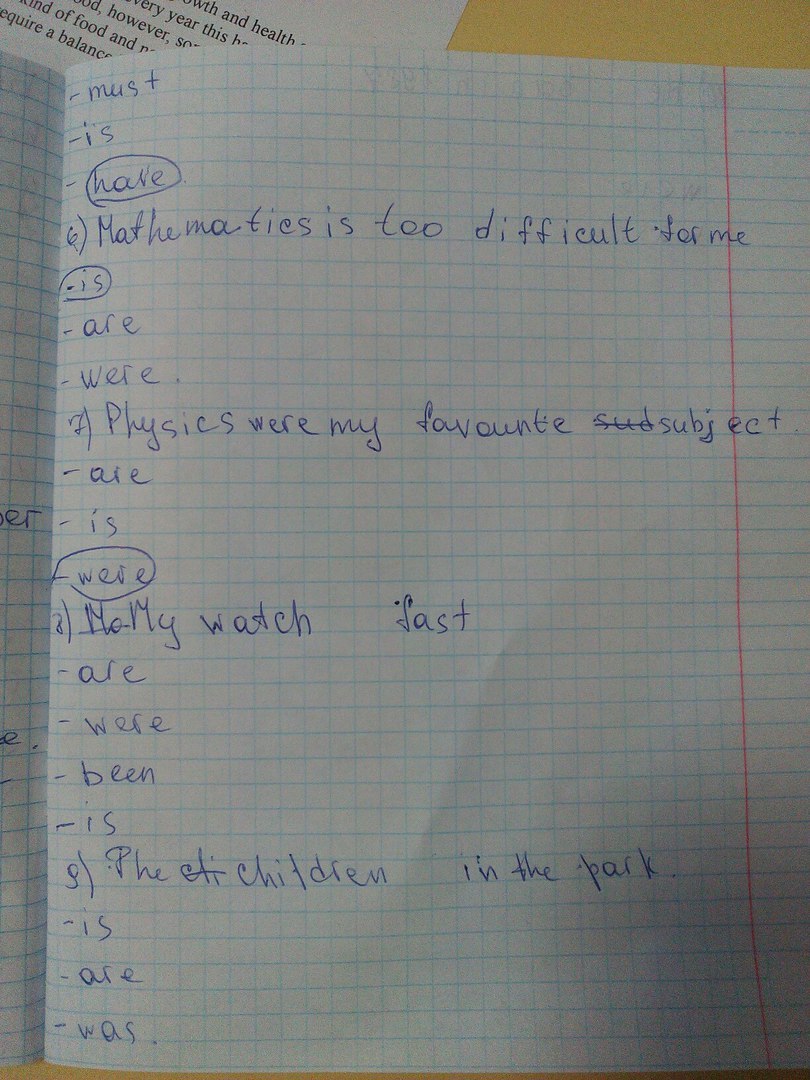 owth and health
ood, however, so
very year this ha
kind of food and
require a balance
- must
- is
- have.
6) Mathematics is too difficult for me
- is
- are
- were.
7) Physics were my favourite sud subject.
- are
- is
- were
8) Ma My watch fast
- are
- were
- been
- is
9) The ch children in the park.
- is
- are
- was.